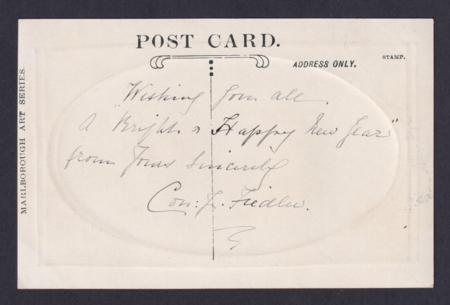 POST CARD.
ADDRESS ONLY.
STAMP.
MARLBOROUGH ART SERIES.
"Wishing you all
A Bright & Happy New Year"
from Yours Sincerely
Fiedler.